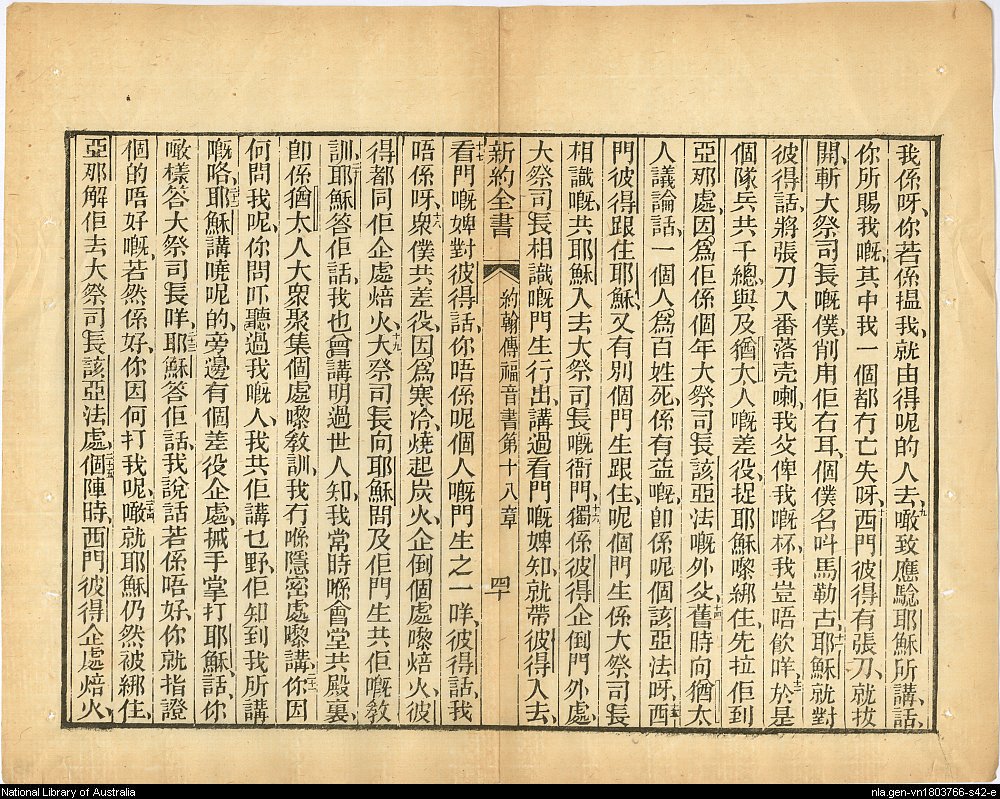 我係呀、你若係搵我、就由得呢的人去、九噉致應驗耶穌所講話、
你所賜我嘅、其中我一個都冇亡失呀、西門彼得有張刀、就拔
開、斬大祭司長嘅僕、削甩佢右耳、個僕名叫馬勒古、十一耶穌就對
彼得話、將張刀入番落壳喇、我父俾我嘅杯、我豈唔飲咩、十二於是
個隊兵、共千總、與及猶太人嘅差役、捉耶穌嚟綁住、先拉佢到
亞那處、因爲佢係個年大祭司長該亞法嘅外父、十四舊時向猶太
人議論話、一個人爲百姓死、係有益嘅、卽係呢個該亞法呀、十五西
門彼得跟住耶穌、又有別個門生跟住、呢個門生係大祭司長
相識嘅、共耶穌入去大祭司長嘅衙門、十六獨係彼得企倒門外處、
大祭司長相識嘅門生行出、講過看門嘅婢知、就帶彼得入去、
新約全書 約翰傳福音書第十八章 四十
十七看門嘅婢對彼得話、你唔係呢個人嘅門生之一咩、彼得話、我
唔係呀、十八衆僕共差役、因爲寒冷、燒起炭火、企倒個處嚟焙火、彼
得都同佢企處焙火、十九大祭司長向耶穌問及佢門生共佢嘅教
訓、二十耶穌答佢話、我也曾講明過世人知、我常時喺會堂共殿裏、
卽係猶太人大衆聚集個處嚟教訓、我冇喺隱密處嚟講、二十一你因
何問我呢、你問吓聽過我嘅人、我共佢講乜野、佢知到我所講
嘅咯、二十二耶穌講曉呢的、旁邊有個差役企處、摑手掌打耶穌、話、你
噉樣答大祭司長咩、二十三耶穌答佢話、我說話若係唔好、你就指證
個的唔好嘅、若然係好、你因何打我呢、二十四噉就耶穌仍然被綁住、
亞那解佢去大祭司長該亞法處、二十五個陣時、西門彼得企處焙火、
National Library of Australia
nla.gen-vn1803766-s42-e